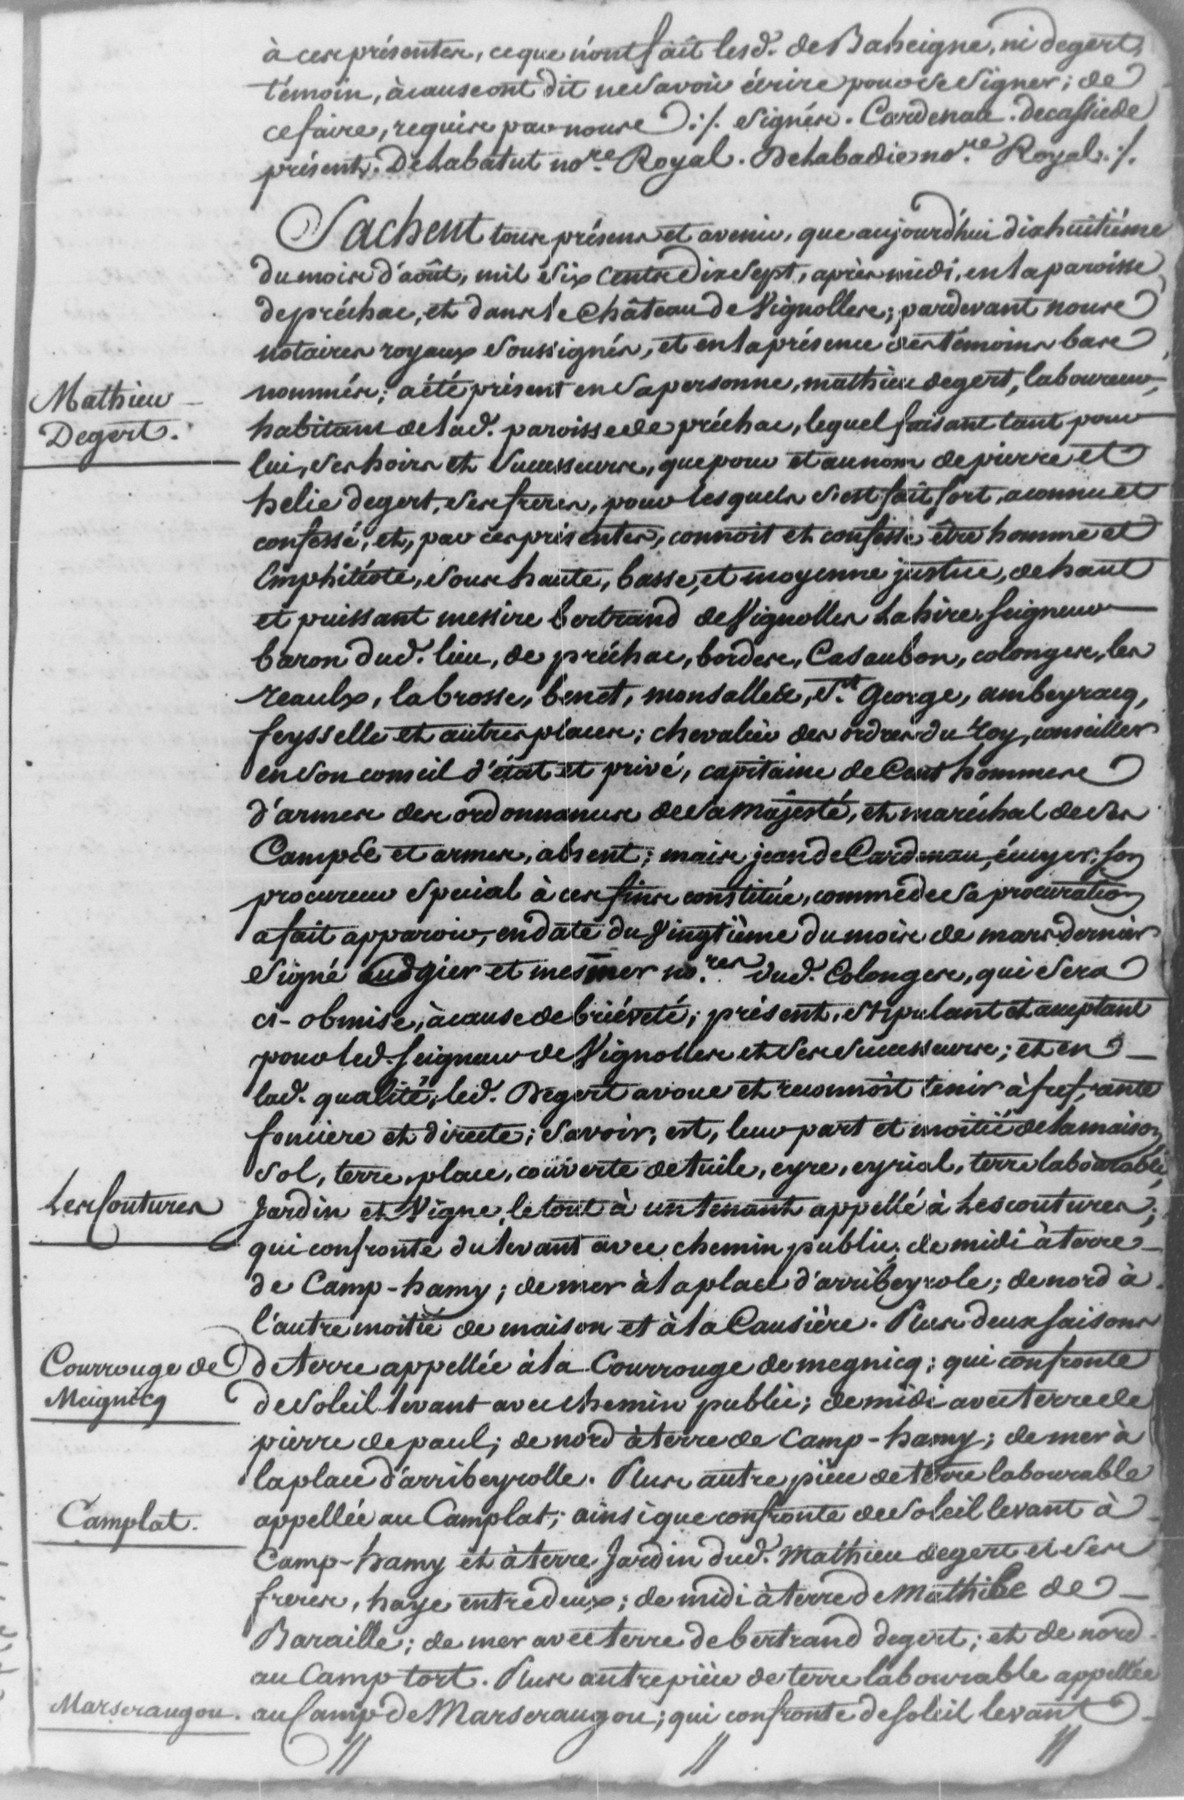 à ces présentes, ce que n'ont fait lesd. de Baheigne, ni degert,
témoin, à cause ont dit ne savoir écrire pour se signer; de
ce faire, requis par nous :/. signés. Cardenau. decassiede
présent. Delabatut no.re Royal. Delabadie no.re Royal :/.
Sachent tous présens et avenir, que aujourd'hui dixhuitième
du mois d'août, mil six cents dix sept, après midi, en la paroisse
de préchac, et dans le château de Vignolles; pardevant nous
notaires royaux soussignés, et en la présence des témoins bas
nommés; a été présent en sa personne, mathieu degert, laboureur,
Mathieu
Degert.
habitant de lad. paroisse de préchac, lequel faisant tant pour
lui, ses hoirs et successeurs, que pour et au nom de pierre et
helie degert, ses freres, pour lesquels s'est fait fort, a connu et
confessé, et, par ces présentes, connoit et confesse être homme et
Emphitéote, sous haute, basse, et moyenne justice, de haut
et puissant messire bertrand de Vignolles Lahire, Seigneur
baron dud. lieu, de préchac, bordes, Casaubon, colonges, les
reaulx, labrosse, benet, monsallec, St. George, ambeyracq,
feysselle et autres places; chevalier des ordres du roy, conseiller
en son conseil d'état et privé, capitaine de Cent hommes
d'armes des ordonnances de sa Majesté, et maréchal de ses
Camps et armes, absent; mais jean de Cardenau, écuyer, son
procureur spécial à ces fins constitué, comme de sa procuration
a fait apparoir, en date du Vingtième du mois de mars dernier
signé Audgier et mesmer no.res dud. Colonges, qui sera
ci-obmise, à cause de briéveté; présent, stipulant et acceptant
pour led. Seigneur de Vignolles et ses successeurs; et en
lad. qualité, led. Degert avoue et reconnoit tenir à fief, rante
fonciere et directe; savoir, est, leur part et moitié de la maison,
sol, terre, place, couverte de tuile, eyre, eyrial, terre labourable,
Les Coutures
Jardin et Vigne, le tout à un tenant appellé à Lescoutures;
qui confronte du levant avec chemin public, de midi à terre
de Camp-hamy; de mer à la place d'arribeyrole; de nord à
l'autre moitié de maison et à la Causière. Plus deux saisons
Courrouge de
Meignicq
de terre appellée à la Courrouge de megnicq; qui confronte
de soleil levant avec chemin public; de midi avec terre de
pierre de paul; de nord à terre de Camp-hamy; de mer à
la place d'arribeyrolle. Plus autre pièce de terre labourable
Camplat.
appellée au Camplat; ainsi que confronte de soleil levant à
Camp-hamy et à terre Jardin dud. Mathieu degert et ses
freres, haye entre deux; de midi à terre de Mathibe de
Baraille; de mer avec terre de bertrand degert; et de nord
au Camp tort. Plus autre pièce de terre labourable appellée
Marseraugou.
au Camp de Marseraugou; qui confronte de soleil levant